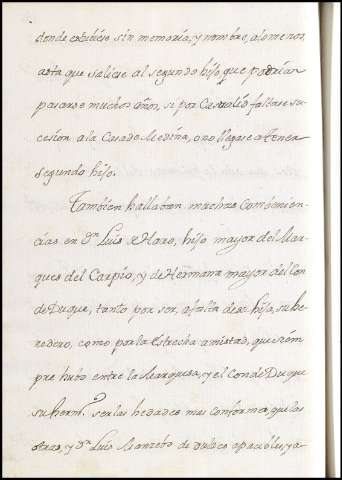 donde estuviese sin memoria, y nombre, alomenos
asta que saliese al segundo hijo, que podrian
pasarse muchos años, si por Casualid faltase su-
cesion a la Casa de Medina, o no llegase a tener
segundo hijo.
Tambien hallaban muchas Combinien-
cias en Dn. Luis de Haro, hijo mayor del Mar-
ques del Carpio, y de Hermana mayor del Con
de Duque, tanto por ser, a falta de su hijo, su he-
redero, como por la estrecha amistad, que siem
pre hubo entre la Marquesa, y el Conde Duque
su herm.o ser las hedades mas conformes que las
otras, y Dn. Luis Manzebo de apacibles, y a-